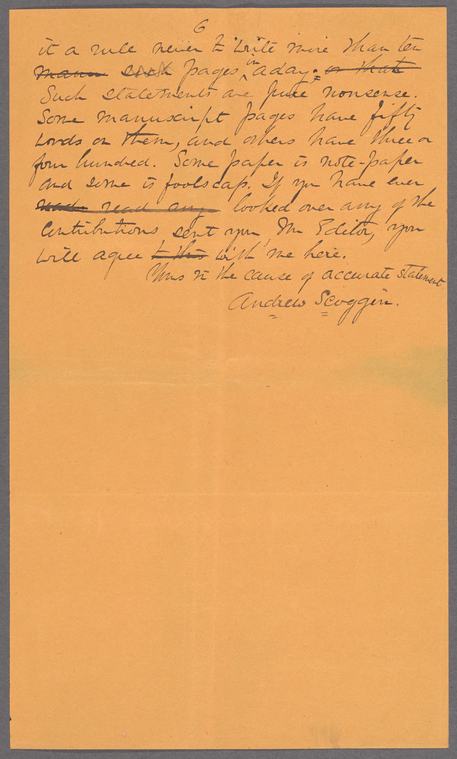 6
it a rule never to write more than ten
manu such pages in a day. or that
Such statements are pure nonsense.
Some manuscript pages have fifty
words on them, and others have three or
four hundred. Some paper is note-paper
and some is foolscap. If you have ever
read any looked over any of the
contributions sent you Mr Editor, you
will agree to this with me here.
Yours in the cause of accurate statement
Andrew Scoggin.